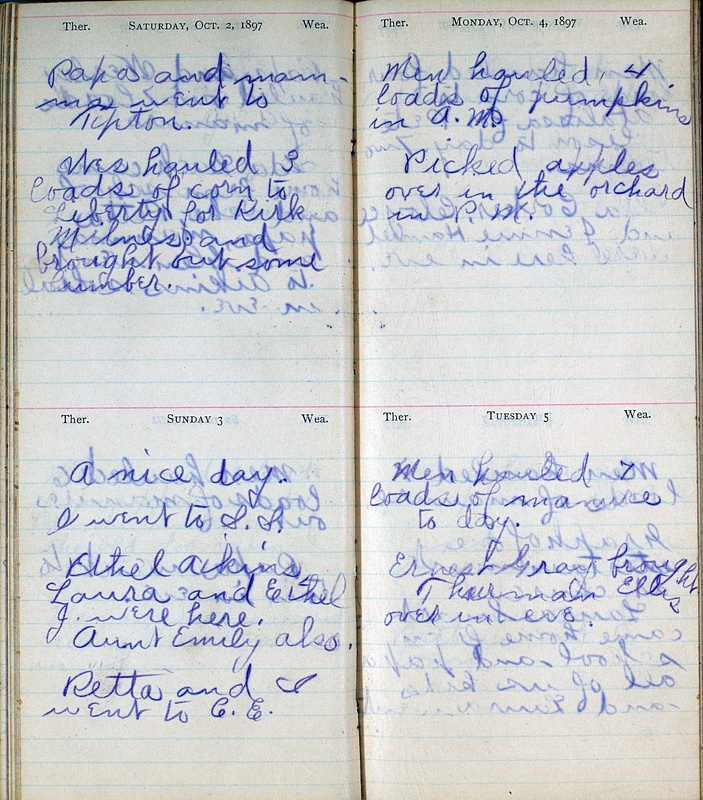 Ther. SATURDAY, OCT. 2, 1897 Wea.
Papa and mam-
ma went to
Tipton.
Wes hauled 3
loads of corn to
Liberty for Kirk
Milness and
brought out some
lumber.
Ther. SUNDAY 3 Wea.
A nice day.
I went to S. S.
Ethel Aikins
Laura and Ethel
J. were here.
Aunt Emily also.
Retta and I
went to C. E.
Ther. MONDAY, OCT. 4, 1897 Wea.
Men hauled 4
loads of pumpkins
in A.M.
Picked apples
over in the orchard
in P. M.
Ther. TUESDAY 5 Wea.
Men hauled 7
loads of manure
to day.
Ernest Grant brought
Thurman Ellis
over in eve.